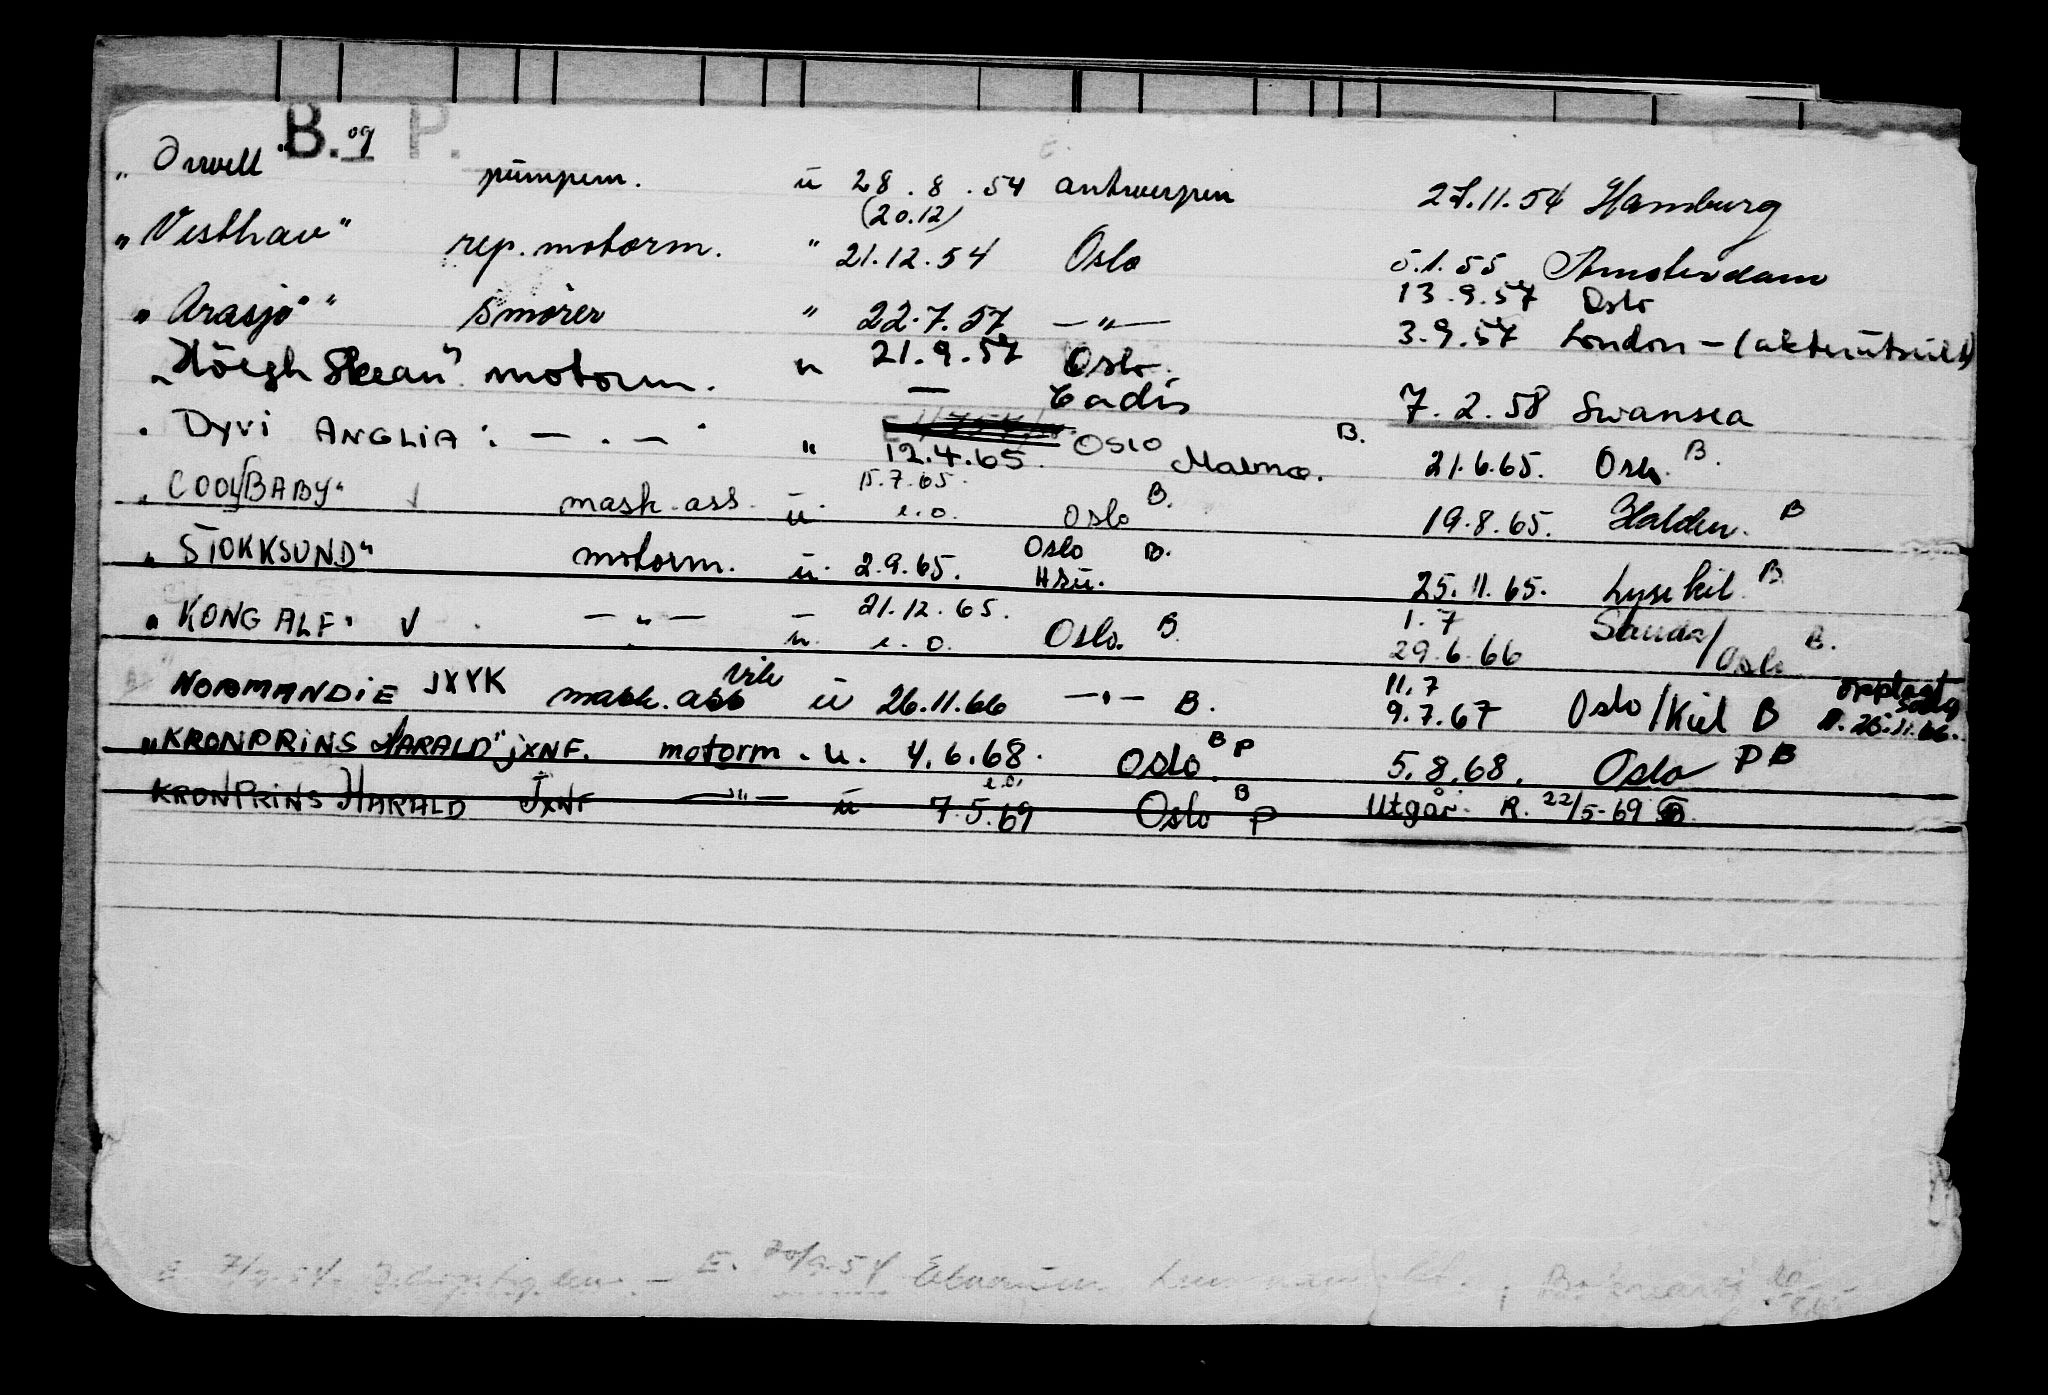 B. og P.
" Orwell " pumpem. u 28.8.54 Antwerpen 27.11.54 Hamburg
(20.12)
" Vesthav " rep. motorm. " 21.12.54 Oslo 5.1.55 Amsterdam
13.9.57 Oslo
" Arasjö " Smører " 22.7.57 — " — 3.9.57 London - (akterutseilt)
" Höegh Skean " motorm. u 21.9.57 Oslo.
— Cadis 7.2.58 Swansea
" DYVI ANGLIA " — " — " 12.4.65. OSLO Malmø. B. 21.6.65. Oslo. B.
15.7.65.
" COOL BABY " mask.ass. u. e.o. Oslo B. 19.8.65. Halden. B
" STOKKSUND " motorm. u. 2.9.65. Oslo Hsu. B. 25.11.65. Lysekil B
21.12.65. 1.7
" KONG ALF " √ — " — u. e.o. Oslo. B. 29.6.66 Sauda/Oslo B.
11.7
NORMANDIE JXYK mask.ass vik u 26.11.66 — " — B. 9.7.67 Oslo/Kiel B 26.11.66.
" KRONPRINS HARALD " JXNF. motorm. u. 4.6.68. Oslo. B P 5.8.68. Oslo P B
KRONPRINS HARALD JXNF — " — u 7.5.69 e.o. Oslo B P Utgår. R. 22/5-69